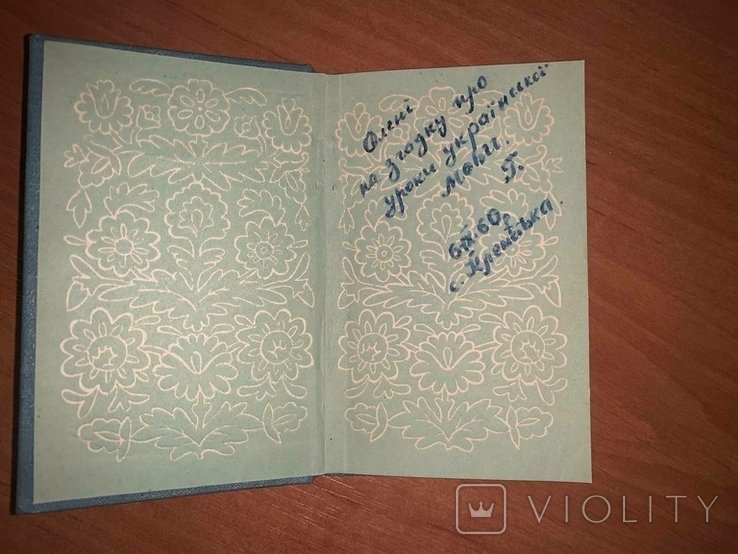 Олені
на згодку про
уроки української
мови.
Г.
60р.
с. Кремінка.
VIOLITY